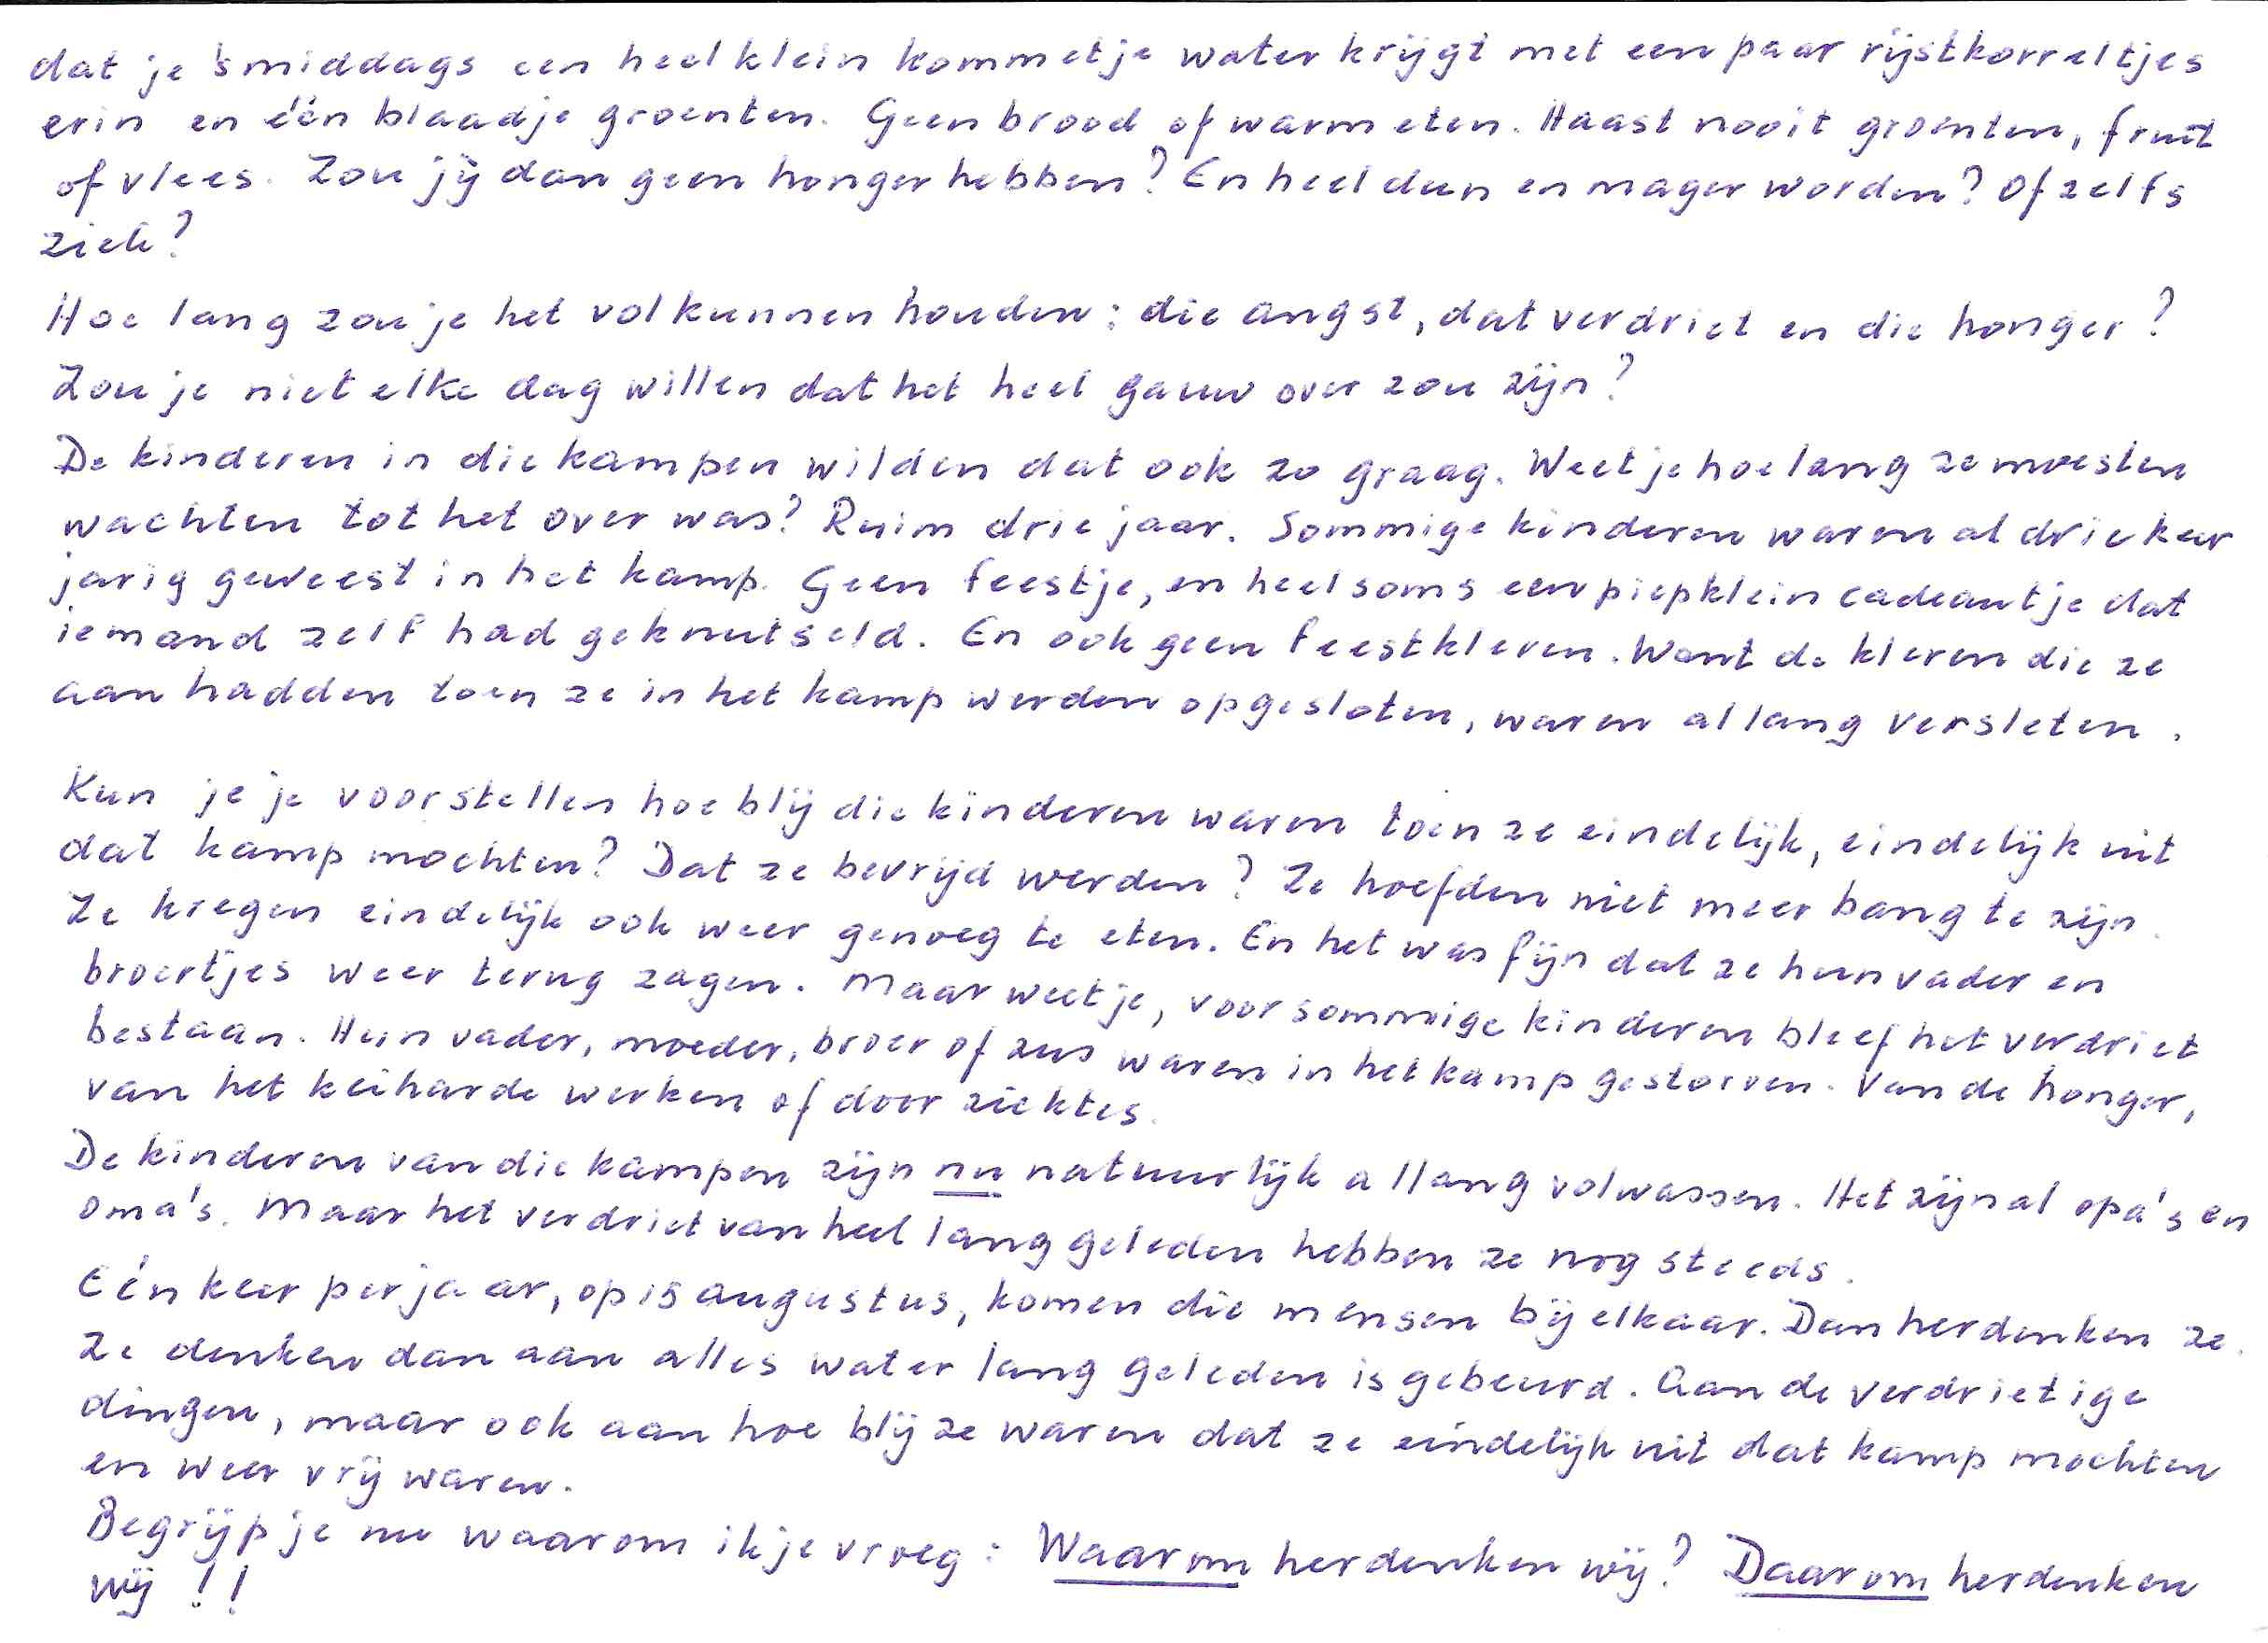 dat je 'smiddags een heel klein kommetje water krijgt met een paar rijstkorreltjes
erin en één blaadje groenten. Geen brood of warm eten. Haast nooit groenten, fruit
of vlees. Zou jij dan geen honger hebben? En heel dun en mager worden? Of zelfs
ziek?
Hoe lang zou je het vol kunnen houden: die angst, dat verdriet en die honger?
Zou je niet elke dag willen dat het heel gauw over zou zijn?
De kinderen in die kampen wilden dat ook zo graag. Weet je hoe lang ze moesten
wachten tot het over was? Ruim drie jaar. Sommige kinderen waren al drie keer
jarig geweest in het kamp. Geen feestje, en heel soms een piepklein cadeautje dat
iemand zelf had geknutseld. En ook geen feestkleren. Want de kleren die ze
aan hadden toen ze in het kamp werden opgesloten, waren allang versleten.
Kun je je voorstellen hoe blij die kinderen waren toen ze eindelijk, eindelijk uit
dat kamp mochten? Dat ze bevrijd werden? Ze hoefden niet meer bang te zijn.
Ze kregen eindelijk ook weer genoeg te eten. En het was fijn dat ze hun vader en
broertjes weer terug zagen. Maar weet je, voor sommige kinderen bleef het verdriet
bestaan. Hun vader, moeder, broer of zus waren in het kamp gestorven. Van de honger,
van het keiharde werken of door ziektes.
De kinderen van die kampen zijn nu natuurlijk allang volwassen. Het zijn al opa's en
oma's. Maar het verdriet van heel lang geleden hebben ze nog steeds.
Eén keer per jaar, op 15 augustus, komen die mensen bij elkaar. Dan herdenken ze.
Ze denken dan aan alles wat er lang geleden is gebeurd. Aan de verdrietige
dingen, maar ook aan hoe blij ze waren dat ze eindelijk uit dat kamp mochten
en weer vrij waren.
Begrijp je nu waarom ik je vroeg: Waarom herdenken wij? Daarom herdenken
wij!!